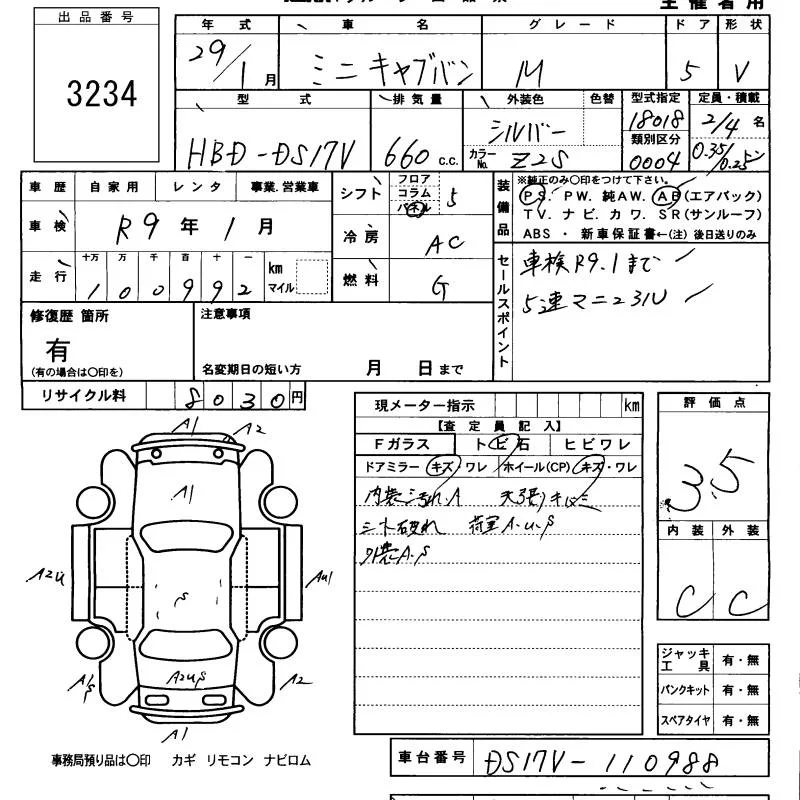 主催者用
出品番号
3234
年式 車名 グレード ドア 形状
29/1月 ミニキャブバン M 5 V
型式 排気量 外装色 色替 型式指定 定員・積載
HBD-DS17V 660 c.c. シルバー 18018 2/4名
カラーNo. Z2S 類別区分 0004 0.35/0.25トン
車歴 自家用 レンタ 事業.営業車
車検 R9年1月
走行 十万 万 千 百 十 一 km マイル
100992
シフト フロア コラム パネル 5
冷房 AC
燃料 G
装備品
※純正のみ〇印をつけて下さい。
PS. PW. 純AW. AB(エアバック)
TV. ナビ. カワ. SR(サンルーフ)
ABS ・ 新車保証書←(注) 後日送りのみ
セールスポイント
車検R9.1まで
5速マニュアル
修復歴 箇所
有
(有の場合は〇印を)
注意事項
名変期日の短い方 月 日まで
リサイクル料 8030円
現メーター指示 km
【査定員記入】
Fガラス トビ石 ヒビワレ
ドアミラー キズ・ワレ ホイール(CP) キズ・ワレ
内装汚れ.A 天張りキバミ
シート破れ 荷室A.U.β
外装A.β
評価点
3.5
内装 外装
C C
A1 A2
A1
A2U AU1
β
A2Uβ
A1β A2
A1
ジャッキ工具 有・無
パンクキット 有・無
スペアタイヤ 有・無
事務局預り品は〇印 カギ リモコン ナビロム
車台番号 DS17V-110988